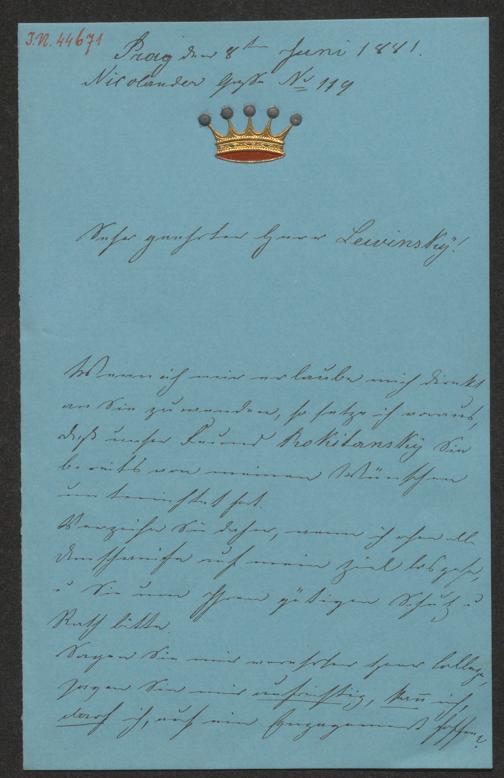 J.N. 44671
Prag den 8ten Juni 1881.
Nicolander Gasse No 119
Sehr geehrter Herr Lewinsky!
Wenn ich mir erlaube mich direkt
an Sie zu wenden, so setze ich voraus,
daß unser Freund Rokitansky Sie
bereits von meinen Wünschen
unterrichtet hat.
Verzeihen Sie daher, wenn ich ohne alle
Umschweife auf mein Ziel losgehe,
u Sie um Ihren gütigen Schutz u
Rath bitte.
Sagen Sie mir verehrter Herr College,
sagen Sie mir aufrichtig, kann ich,
darf ich, auf ein Engagement hoffen?